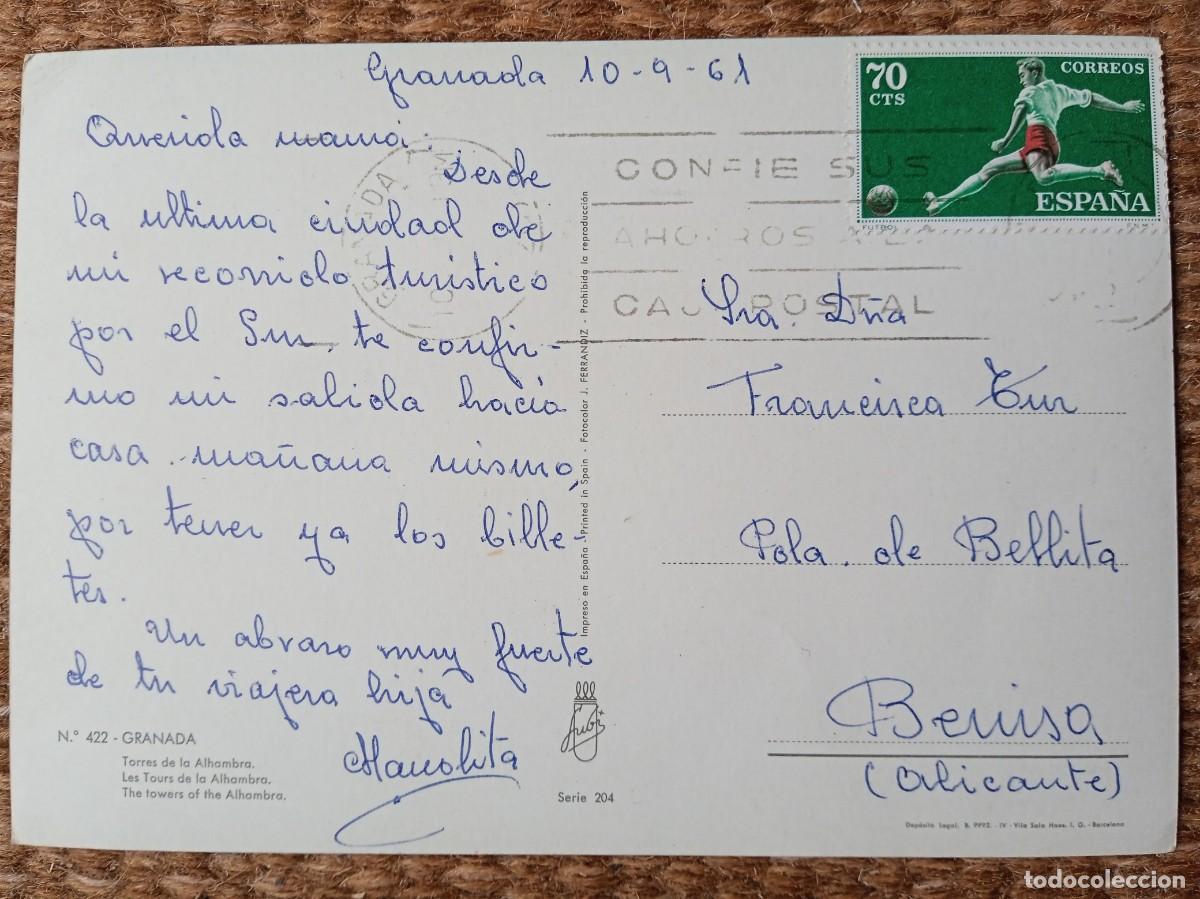 Granada 10-9-61
Querida mamá:
Desde
la ultima ciudad de
mi recorrido turístico
por el Sur, te confir-
mo mi salida hacia
casa mañana mismo,
por tener ya los bille-
tes.
Un abrazo muy fuerte
de tu viajera hija
Manolita
N.º 422 - GRANADA
Torres de la Alhambra.
Les Tours de la Alhambra.
The towers of the Alhambra.
Impreso en España - Printed in Spain - Fotocolor J. FERRANDIZ - Prohibida la reproducción
Serie 204
70
CTS
CORREOS
ESPAÑA
FUTBOL
F.N.M.T
GRANADA
CONFIE SUS
AHORROS A LA
CAJA POSTAL
Sra. Dña
Francisca Tur
Pola. de Bellita
Benisa
(Alicante)
Depósito Legal. B. 9992. - IV - Vila Sala Hnos. I. G. - Barcelona
todocoleccion